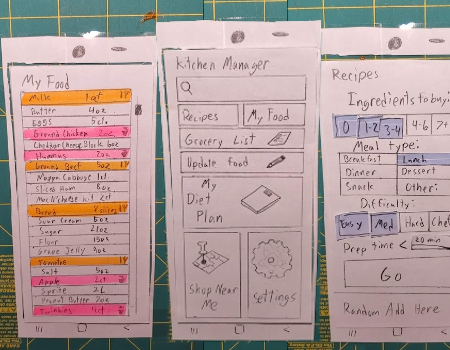 My Food
Milk 1 qt
Butter 4oz
EGGS 5 ct.
Ground Chicken 2oz
Cheddar Cheese Block 6oz
Hummus 2oz
Ground Beef 5oz
Nappa Cabbage 1ct.
Sliced Ham 8oz
Mac N' cheese kit 2ct
Bread
Sour Cream 6oz
Sugar 21oz
Flour 18oz
Grape Jelly 9oz
Tomatoe
Salt 5oz
Apple 2ct
Sprite 2L
Peanut Butter 7oz
Twinkies 4ct
Kitchen Manager
Recipes My Food
Grocery List
Update food
My
Diet
Plan
Shop Near
Me
Settings
Recipes
Ingredients to buy:
0 1-2 3-4 4-6 7+
Meal type:
Breakfast Lunch
Dinner Dessert
Snack Other:
Difficulty:
Easy Med Hard Chef
Prep time < 20 min
Go
Random Add Here